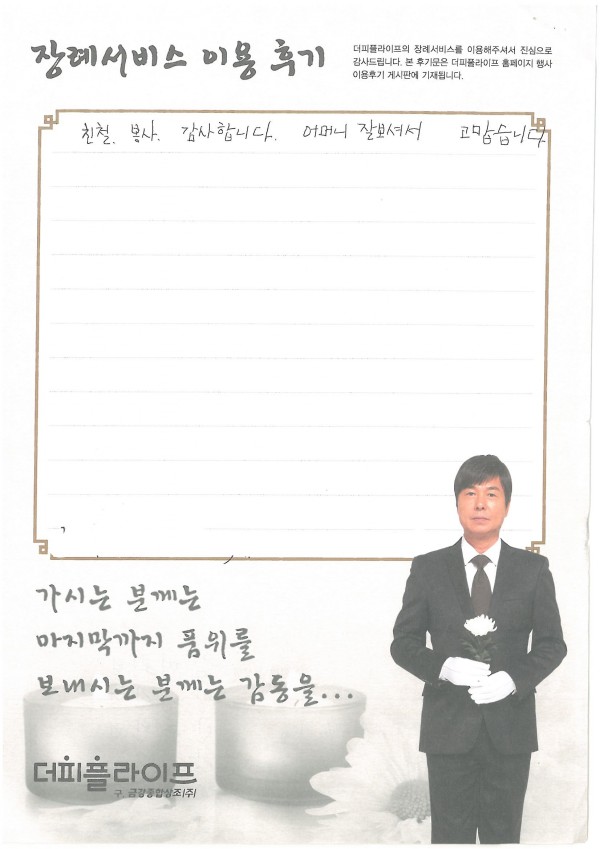 장례서비스 이용 후기
더피플라이프의 장례서비스를 이용해주셔서 진심으로
감사드립니다. 본 후기문은 더피플라이프 홈페이지 행사
이용후기 게시판에 기재됩니다.
친철, 봉사. 감사합니다. 어머니 잘보셔서 고맙습니다.
가시는 분께는
마지막까지 품위를
보내시는 분께는 감동을...
더피플라이프
구. 금강종합상조(주)